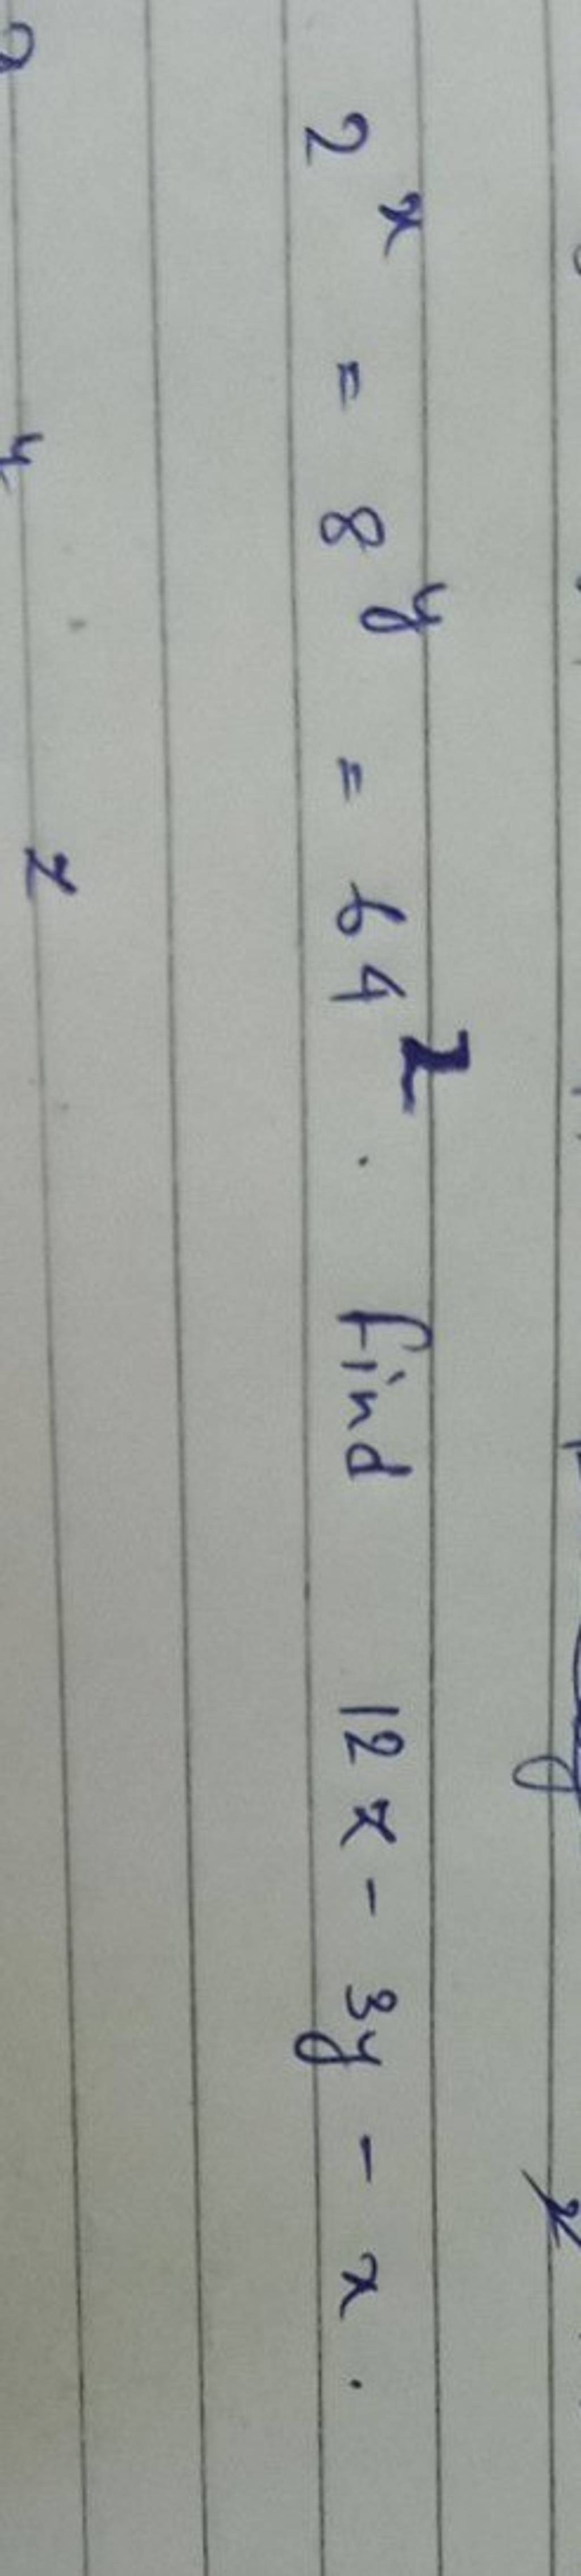 2^x = 8^y = 64^z . find 12x - 3y - x .